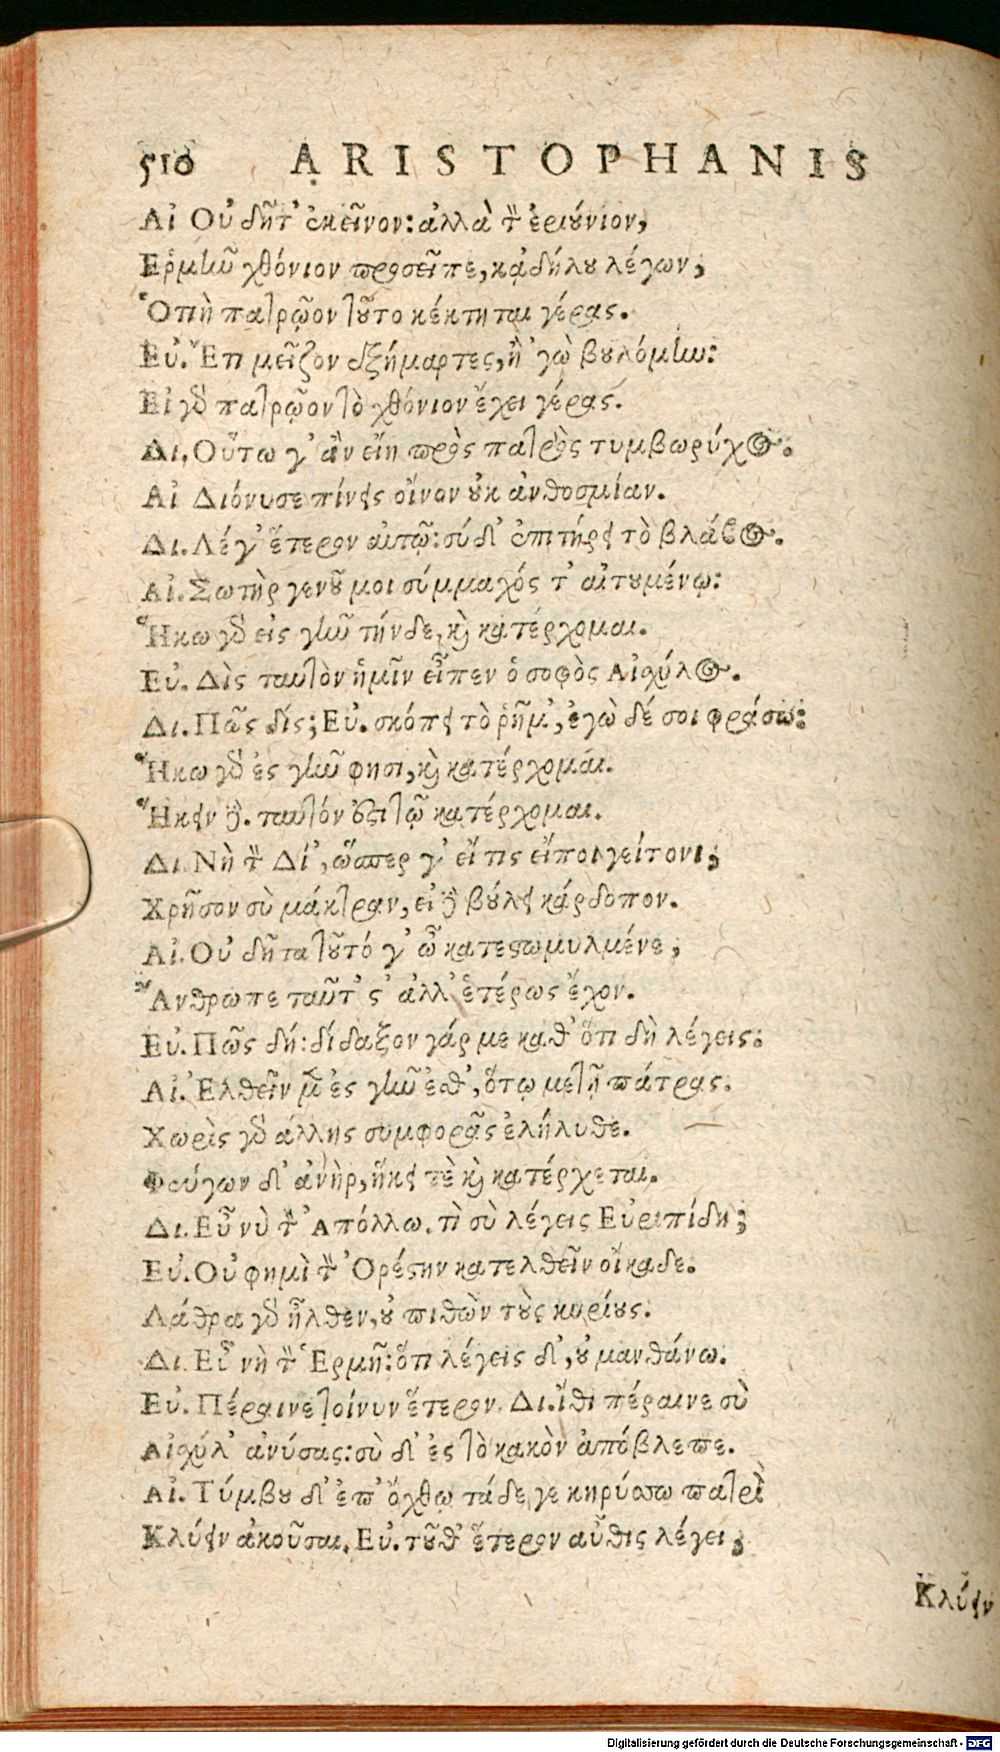 510 ARISTOPHANIS
Αἰ Οὐ δῆτ' ἐκεῖνον: ἀλλὰ τὸν ἐριούνιον,
Ερμῆν χθόνιον προσεῖπε, κᾀδήλου λέγων,
Ὁτιὴ πατρῷον τοῦτο κέκτηται γέρας.
Εὐ. Ἔτι μεῖζον ἐξήμαρτες, ἢ 'γὼ βουλόμην:
Εἰ γὰρ πατρῷον τὸ χθόνιον ἔχει γέρας.
Δι. Οὕτω γ' ἂν εἴη πρὸς πατρὸς τυμβωρύχος.
Αἰ Διόνυσε πίνεις οἶνον οὐκ ἀνθοσμίαν.
Δι. Λέγ' ἕτερον αὐτῷ: σύ δ' ἐπιτήρει τὸ βλάβος.
Αἰ. Σωτὴρ γενοῦ μοι σύμμαχός τ' αἰτουμένῳ:
Ἥκω γὰρ εἰς γῆν τήνδε, καὶ κατέρχομαι.
Εὐ. Δὶς ταυτὸν ἡμῖν εἶπεν ὁ σοφὸς Αἰσχύλος.
Δι. Πῶς δίς; Εὐ. σκόπει τὸ ῥῆμ', ἐγὼ δέ σοι φράσω:
Ἥκω γὰρ ἐς γῆν φησι, καὶ κατέρχομαι.
Ἥκειν δὲ. ταυτόν ἐστι τῷ κατέρχομαι.
Δι. Νὴ τὸν Δί', ὥσπερ γ' εἴ τις εἴποι γείτονι,
Χρῆσον σὺ μάκτραν, εἰ δὲ βούλει κάρδοπον.
Αἰ. Οὐ δῆτα τοῦτό γ' ὦ κατεστωμυλμένε,
Ἄνθρωπε ταῦτ' ἐστ' ἀλλ' ἑτέρως ἔχον.
Εὐ. Πῶς δή: δίδαξον γάρ με καθ' ὅτι δὴ λέγεις:
Αἰ. Ἐλθεῖν μὲν ἐς γῆν ἐσθ', ὅτῳ μετῇ πάτρας.
Χωρὶς γὰρ ἄλλης συμφορᾶς ἐλήλυθε.
Φεύγων δ' ἀνὴρ, ἥκει τὲ καὶ κατέρχεται.
Δι. Εὖ νὺ τὸν Ἀπόλλω. τὶ σὺ λέγεις Εὐριπίδη;
Εὐ. Οὐ φημὶ τὸν Ὀρέστην κατελθεῖν οἴκαδε.
Λάθρα γὰρ ἦλθεν, οὐ πιθὼν τοὺς κυρίους.
Δι. Εὖ νὴ τὸν Ἑρμῆ: ὅτι λέγεις δ', οὐ μανθάνω.
Εὐ. Πέραινε τοίνυν ἕτερον. Δι. ἴθι πέραινε σὺ
Αἰσχύλ' ἀνύσας: σὺ δ' ἐς τὸ κακὸν ἀπόβλεπε.
Αἰ. Τύμβου δ' ἐπ' ὄχθῳ τάδε γε κηρύσσω πατρὶ
Κλύειν ἀκοῦσαι. Εὐ. τοῦθ' ἕτερον αὖθις λέγει,
Κλύειν
Digitalisierung gefördert durch die Deutsche Forschungsgemeinschaft - DFG